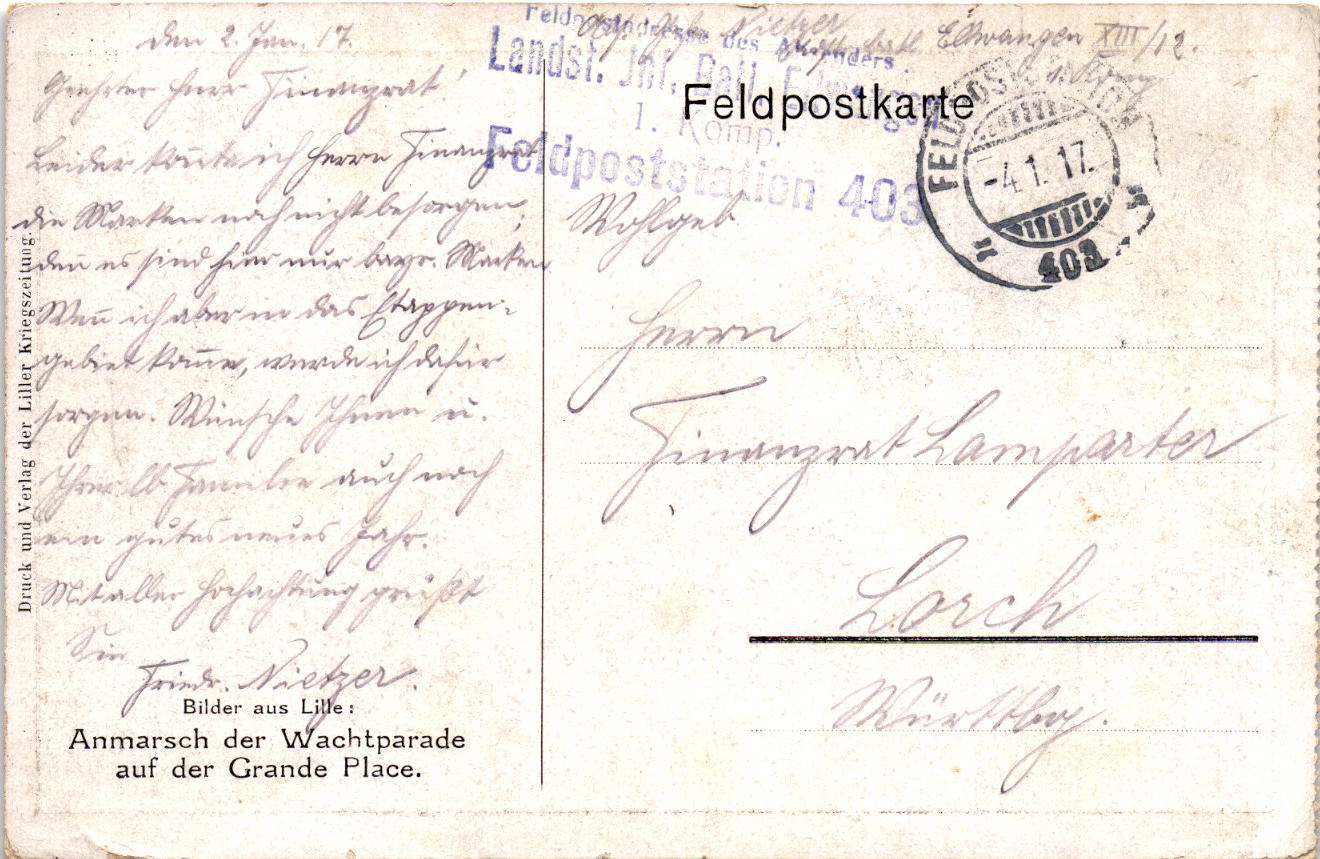 den 2. Jan. 17.
Geehrter Herr Finanzrat!
Leider konnte ich Herrn Finanzrat
die Marken noch nicht besorgen,
den̄ es sind hier nur bayr. Marken
Wen̄ ich aber in das Etappen-
gebiet kom̄e, werde ich dafür
sorgen. Wünsche Ihnen u.
Ihrer lb. Familie auch noch
ein gutes neues Jahr.
Mit aller Hochachtung grüßt
Sie
Friedr. Nietzer.
Bilder aus Lille:
Anmarsch der Wachtparade
auf der Grande Place.
Druck und Verlag der Liller Kriegszeitung.
Nietzer
Ellwangen XIII/12.
Feldpostadresse des Absenders
Landst. Inf. Batl. Ellwangen
1. Komp.
Feldpoststation 403
Feldpostkarte
-4.1.17.
403
Wohlgeb
Herrn
Finanzrat Lamparter
Lorch
Württbg.